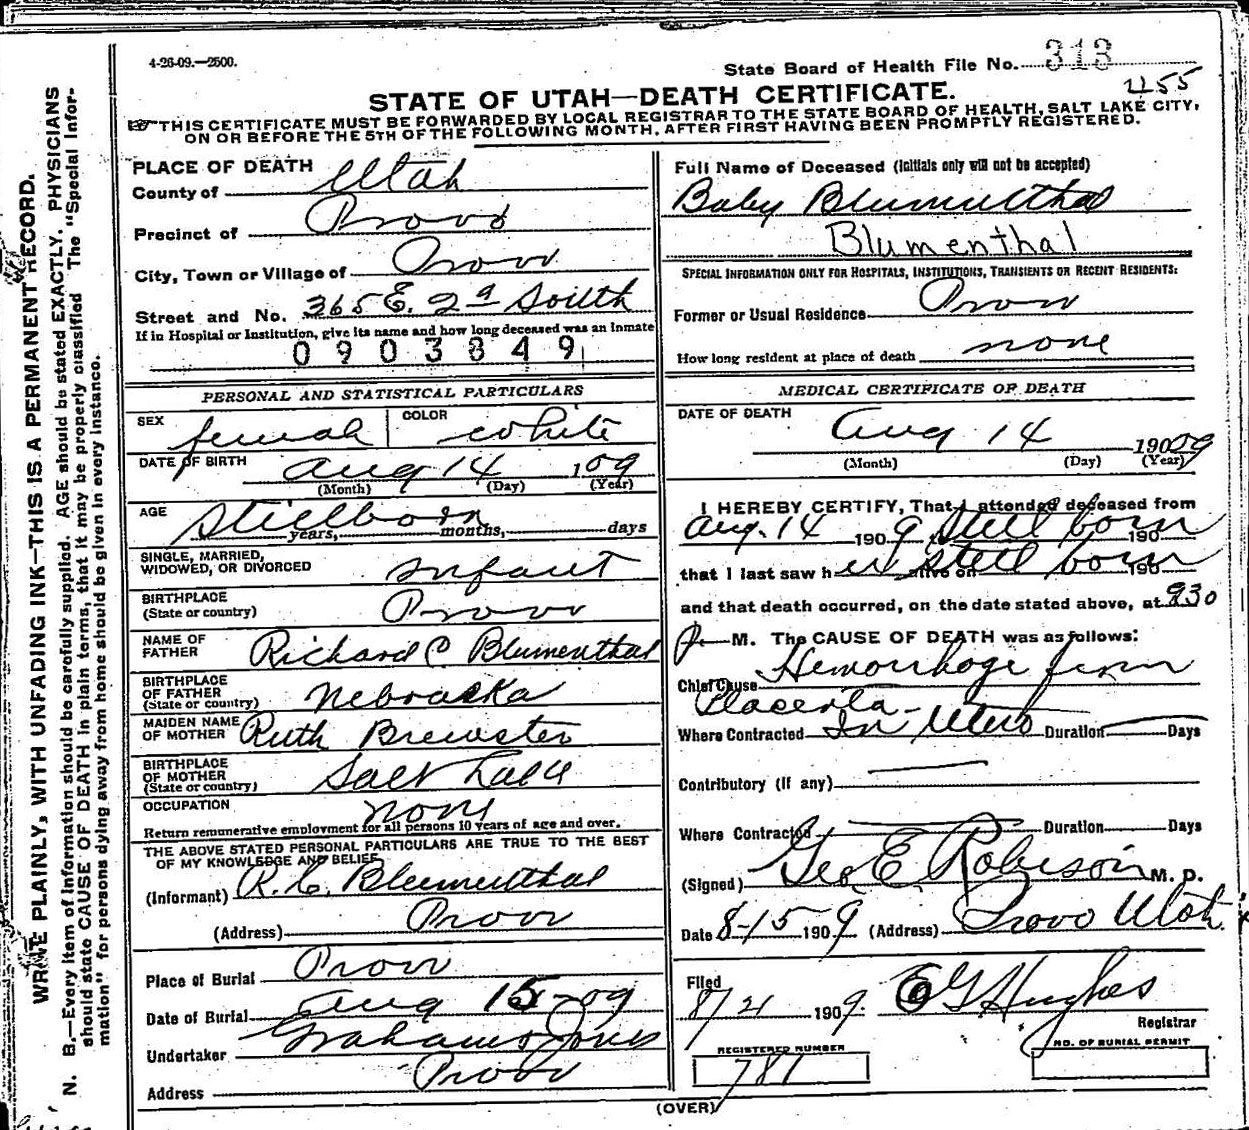 4-26-09.—2500.
State Board of Health File No. 313
2155
STATE OF UTAH—DEATH CERTIFICATE.
THIS CERTIFICATE MUST BE FORWARDED BY LOCAL REGISTRAR TO THE STATE BOARD OF HEALTH, SALT LAKE CITY,
ON OR BEFORE THE 5TH OF THE FOLLOWING MONTH, AFTER FIRST HAVING BEEN PROMPTLY REGISTERED.
WRITE PLAINLY, WITH UNFADING INK—THIS IS A PERMANENT RECORD.
N. B.—Every item of information should be carefully supplied. AGE should be stated EXACTLY. PHYSICIANS
should state CAUSE OF DEATH in plain terms, that it may be properly classified The "Special Infor-
mation" for persons dying away from home should be given in every instance.
PLACE OF DEATH
County of Utah
Precinct of Provo
City, Town or Village of Provo
Street and No. 365 E. 2d South
If in Hospital or Institution, give its name and how long deceased was an Inmate
0903849
PERSONAL AND STATISTICAL PARTICULARS
SEX female COLOR white
DATE OF BIRTH Aug 14 109
(Month) (Day) (Year)
AGE Stillborn
years, months, days
SINGLE, MARRIED,
WIDOWED, OR DIVORCED infant
BIRTHPLACE
(State or country) Provo
NAME OF
FATHER Richard C. Blumenthal
BIRTHPLACE
OF FATHER
(State or country) Nebraska
MAIDEN NAME
OF MOTHER Ruth Brewster
BIRTHPLACE
OF MOTHER
(State or country) Salt Lake
OCCUPATION none
Return remunerative employment for all persons 10 years of age and over.
THE ABOVE STATED PERSONAL PARTICULARS ARE TRUE TO THE BEST
OF MY KNOWLEDGE AND BELIEF
(Informant) R. C. Blumenthal
(Address) Provo
Place of Burial Provo
Date of Burial Aug 15-09
Undertaker Graham & Jones
Address Provo
Full Name of Deceased (Initials only will not be accepted)
Baby Blumulthal
Blumenthal
SPECIAL INFORMATION ONLY FOR HOSPITALS, INSTITUTIONS, TRANSIENTS OR RECENT RESIDENTS:
Former or Usual Residence Provo
How long resident at place of death none
MEDICAL CERTIFICATE OF DEATH
DATE OF DEATH
Aug 14 19009
(Month) (Day) (Year)
I HEREBY CERTIFY, That I attended deceased from
Aug. 14 1909, still born 190
that I last saw her alive on still born 190
and that death occurred, on the date stated above, at 930
P M. The CAUSE OF DEATH was as follows:
Chief Cause Hemorrhage from
Placenta-
Where Contracted In Utero Duration Days
Contributory (If any)
Where Contracted Duration Days
(Signed) Geo. E. Robison M. D.
Date 8-15 1909. (Address) Provo Utah
Filed
8/21 1909. E G Hughes
Registrar
REGISTERED NUMBER
781
NO. OF BURIAL PERMIT
(OVER)